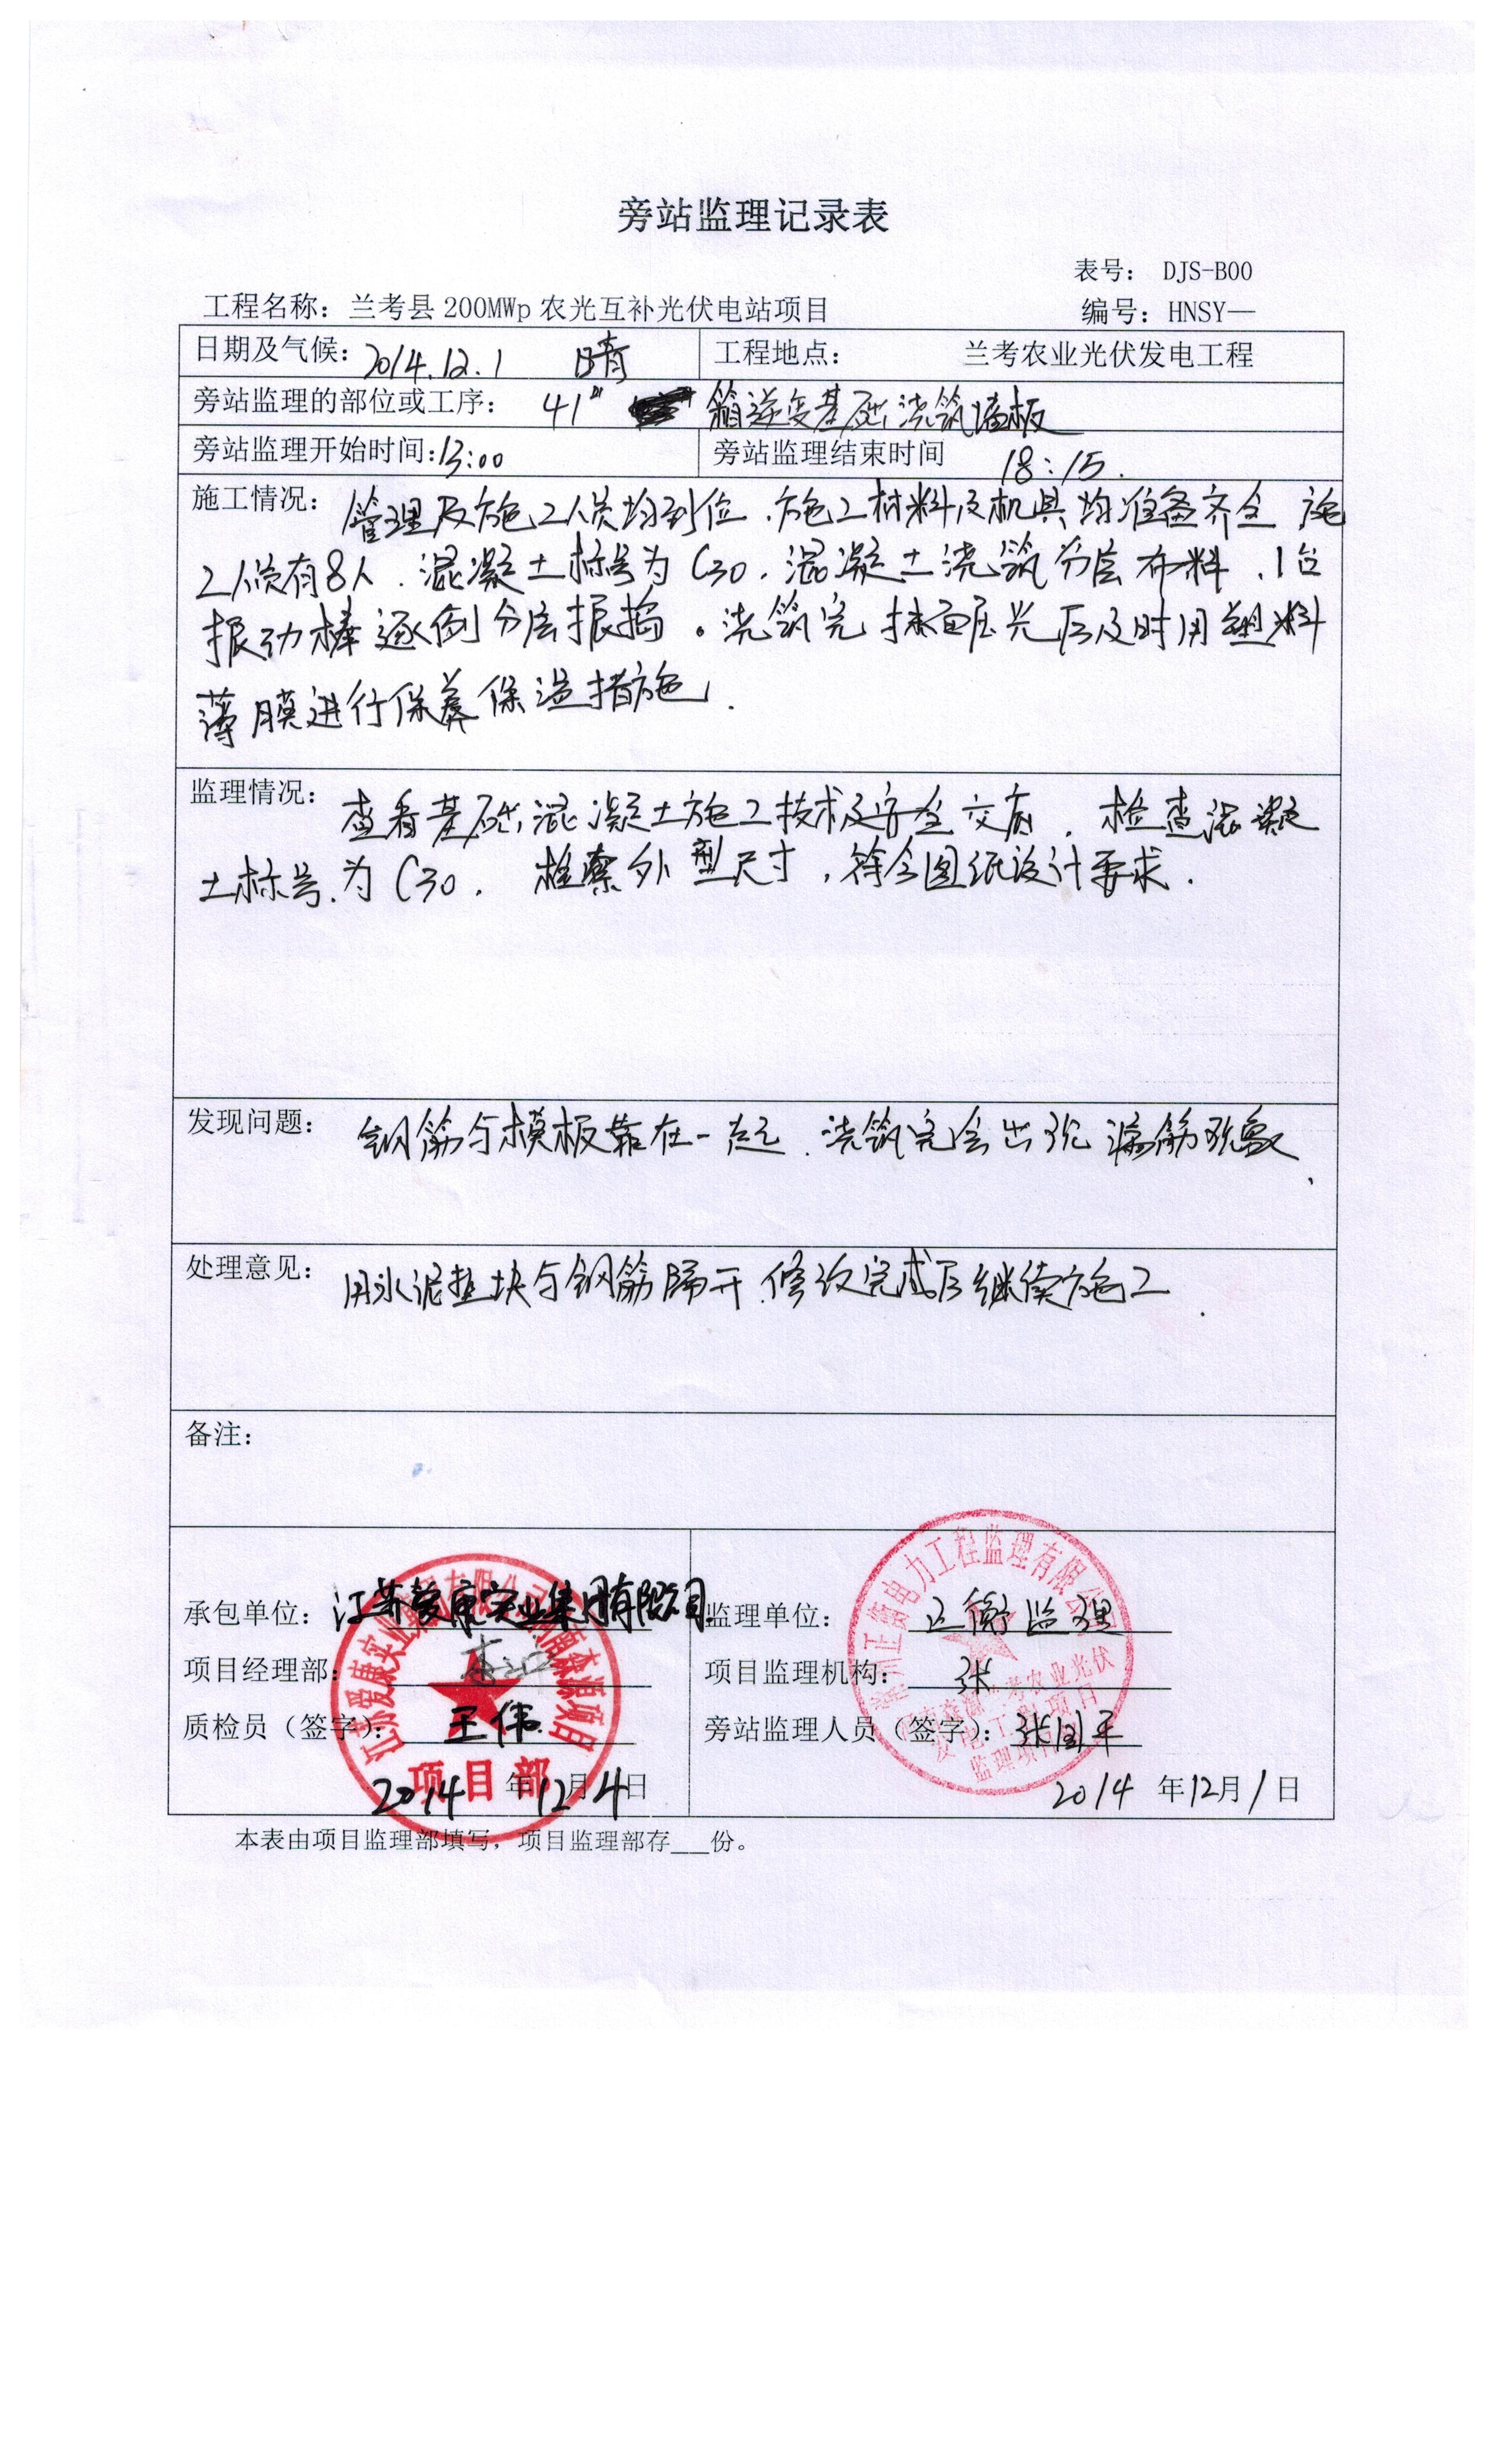 旁站监理记录表
表号： DJS-B00
工程名称：兰考县 200MWp 农光互补光伏电站项目 编号：HNSY—
日期及气候：2014.12.1 晴 工程地点： 兰考农业光伏发电工程
旁站监理的部位或工序： 41# 箱逆变基础浇筑墙板
旁站监理开始时间：13:00 旁站监理结束时间 18:15.
施工情况： 管理及施工人员均到位．施工材料及机具均准备齐全 施
工人员有8人．混凝土标号为C30．混凝土浇筑分层布料．1台
振动棒逐倒分层振捣。浇筑完抹面压光后及时用塑料
薄膜进行保养保温措施．
监理情况： 查看基础混凝土施工技术及安全交底．检查混凝
土标号．为C30． 检察外型尺寸，符合图纸设计要求．
发现问题： 钢筋与模板靠在一起．浇筑完会出现漏筋现象、
处理意见： 用水泥垫块与钢筋隔开．修改完成后继续施工．
备注：
承包单位：江苏爱康实业集团有限公司 监理单位： 正衡监理
项目经理部： 项目监理机构： 张
质检员（签字）： 王伟 旁站监理人员（签字）：张国平
2014 年12月4日 2014 年12月1日
项目部
本表由项目监理部填写，项目监理部存__份。